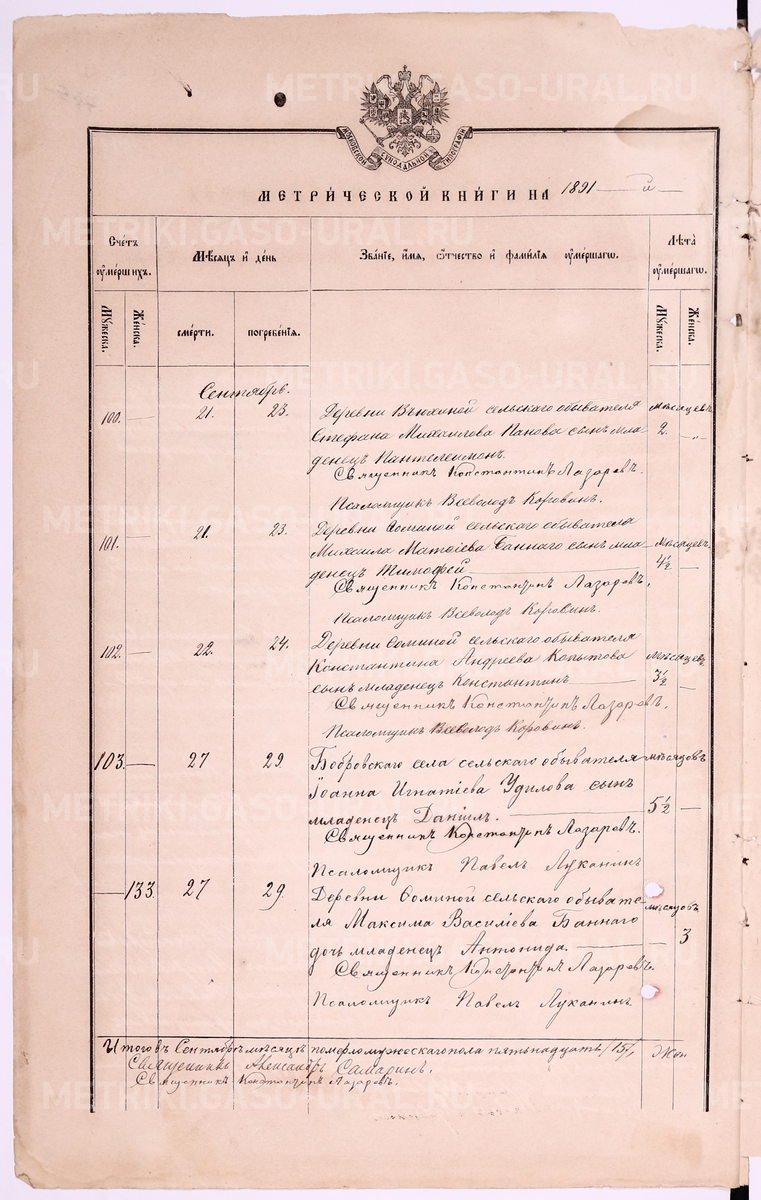 METRIKI.GASO-URAL.RU
МОСКОВСКОЙ СѴНОДАЛЬНОЙ ТИПОГРАФІИ
МЕТРИ́ЧЕСКОЙ КНИ́ГИ НА 1891 й
Сче́тъ ᲂумє́ршихъ.
Мѣ́сяцъ и҆ де́нь
Зва́нїе, и҆́мя, ѻ҆́тчество и҆ фами́лїя ᲂу҆ме́ршагѡ.
Лѣ́та ᲂу҆ме́ршагѡ.
Му́жеска.
Же́нска.
сме́рти.
погребе́нїя.
Му́жеска.
Же́нска.
Сентябрь.
100. — 21. 23. Деревни Вьнхиной сельскаго обывателя мѣсяцевъ
Стефана Михаилова Панова сынъ мла- 2. „
денецъ Пантелеимонъ.
Священникъ Константинъ Лазаревъ.
Псаломщикъ Всеволодъ Коровинъ.
101. — 21. 23. Деревни Соминой сельскаго обывателя
Михаила Матѳіева Баннаго сынъ мла- мѣсяцевъ
денецъ Тимофей — 4½ —
Священникъ Константинъ Лазаревъ.
Псаломщикъ Всеволодъ Коровинъ.
102. — 22. 24. Деревни Соминой сельскаго обывателя
Константина Андреева Копытова мѣсяцевъ
сынъ младенецъ Константинъ — 3½ —
Священникъ Константинъ Лазаревъ.
Псаломщикъ Всеволодъ Коровинъ.
103. — 27 29. Бобровскаго села сельскаго обывателя мѣсяцовъ
Іоанна Игнатіева Удилова сынъ
младенецъ Даніилъ. — 5½ —
Священникъ Константинъ Лазаревъ.
Псаломщикъ Павелъ Луканинъ
— 133. 27 29. Деревни Соминой сельскаго обывате-
ля Максима Василіева Баннаго мѣсяцовъ
дочь младенецъ Антонида. — — 3
Священникъ Константинъ Лазаревъ.
Псаломщикъ Павелъ Луканинъ
Итого въ Сентябрѣ мѣсяцѣ померло мужескаго пола пятьнадцать /15/, Жен
Священникъ Александръ Самаринъ.
Священникъ Константинъ Лазаревъ.